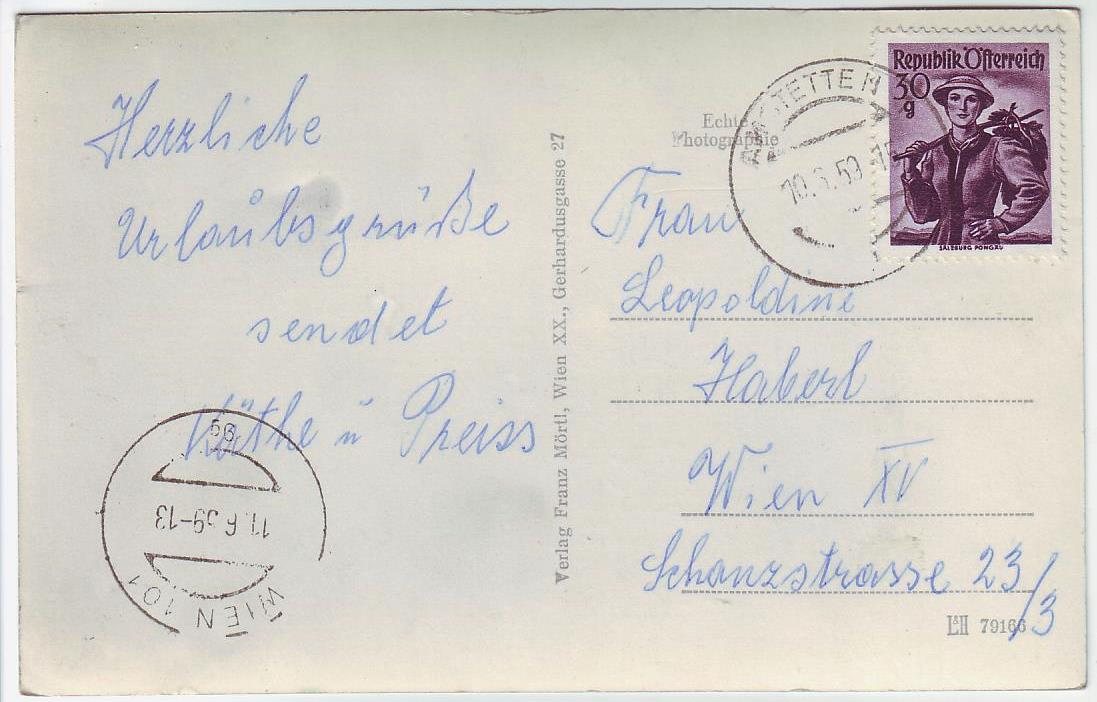 Herzliche
Urlaubsgrüße
sendet
Käthe u Preiss
56
11.6.59-13
WIEN 101
Verlag Franz Mörtl, Wien XX., Gerhardusgasse 27
Echte
Photographie
AMSTETTEN
10.6.59
Republik Österreich
30
g
SALZBURG PONGAU
Frau
Leopoldine
Haberl
Wien XV
Schanzstrasse 23/3
L&H 79166